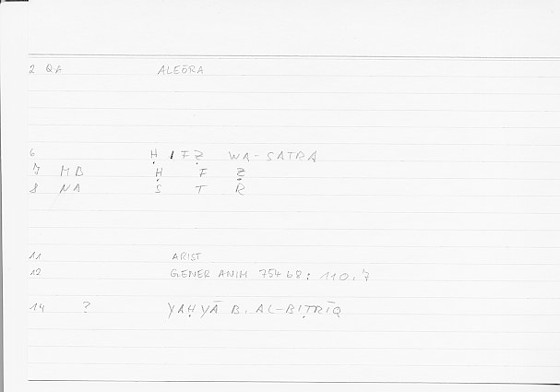 2 QA ALEŌRA
6 Ḥ I F Ẓ WA-SATRA
7 MB Ḥ F Ẓ
8 NA S T R
11 ARIST
12 GENER ANIM 754 b8: 110,7
14 ? YAḤYĀ B. AL-BIṬRĪQ